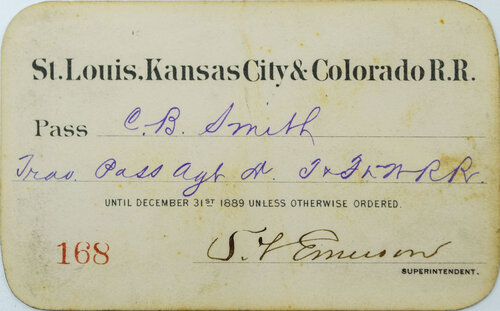 St. Louis, Kansas City & Colorado R.R.
Pass C. B. Smith
Trav. Pass Agt
UNTIL DECEMBER 31ST 1889 UNLESS OTHERWISE ORDERED.
168
Emerson
SUPERINTENDENT.